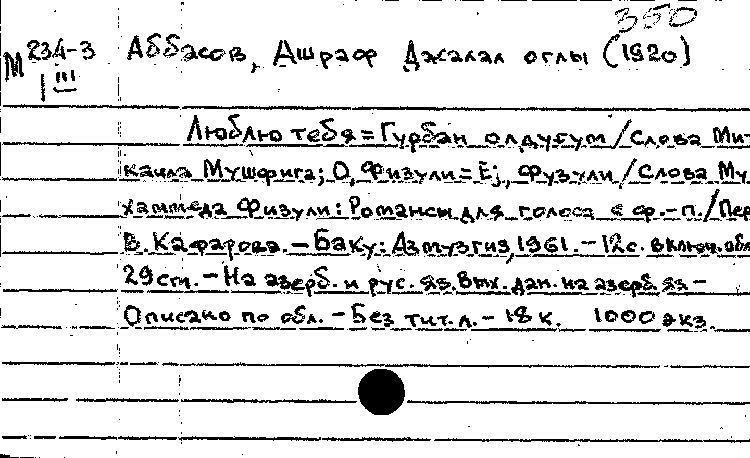 350
М 234-3 Аббасов, Ашраф Джалал оглы (1920)
I III
Люблю тебя = Гурбан олдуғум / Слова Ми-
каила Мушфига; О, Физули = Еј, Фузули / Слова Му
хаммеда Физули: Романсы для голоса с ф.-п. / Пер
В. Кафарова. - Баку: Азмузгиз, 1961. - 12 с. включ. обл
29 см. - На азерб. и рус. яз. Вых. дан. на азерб. яз -
Описано по обл. - Без тит. л. - 18 к. 1000 экз.